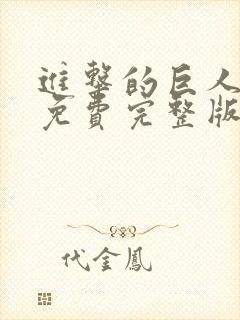 進擊的巨人
免費完整版
代金鳳